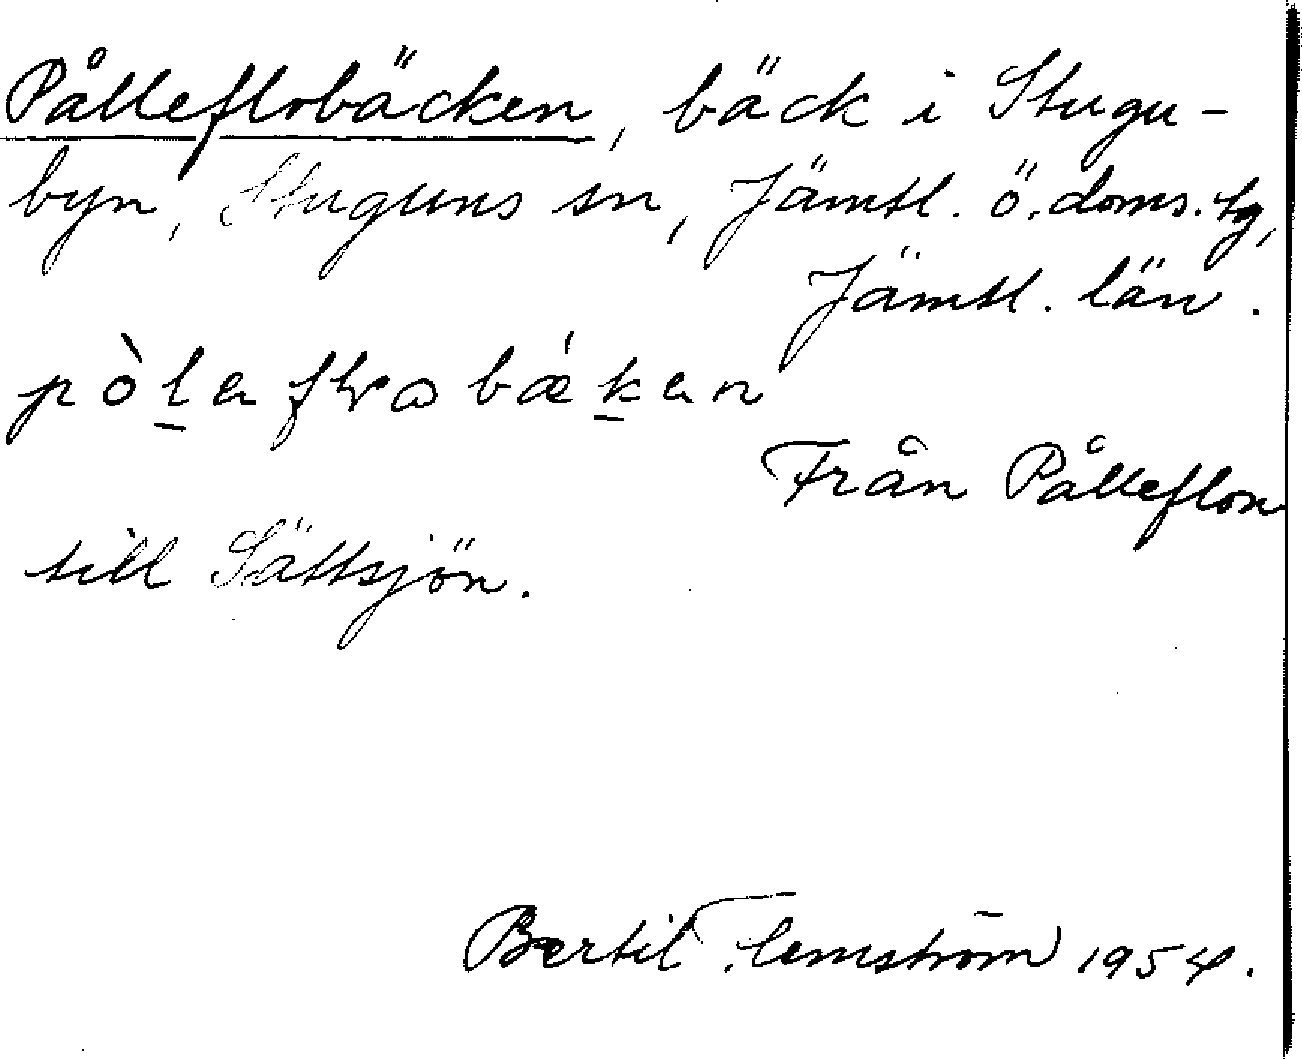 Pålleflobäcken, bäck i Stugu-
byn, Stuguns sn, Jämtl. ö. doms. tg,
Jämtl. län.
Från Pålleflon
till Sättsjön.
Bertil Flemström 1954.